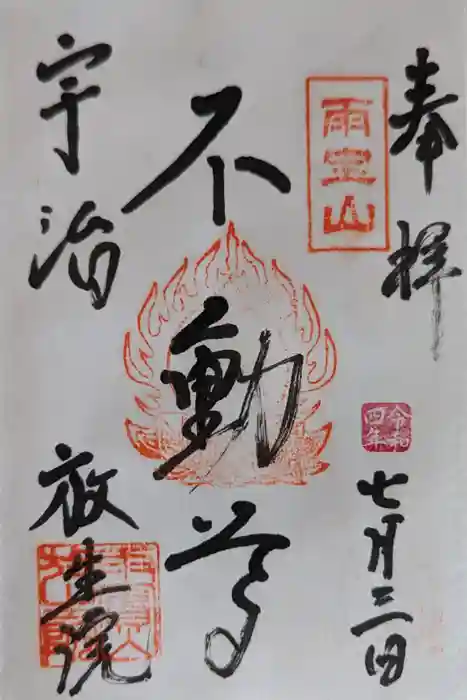 奉拝
雨宝山
令和四年
七月三日
不動尊
宇治
放生院